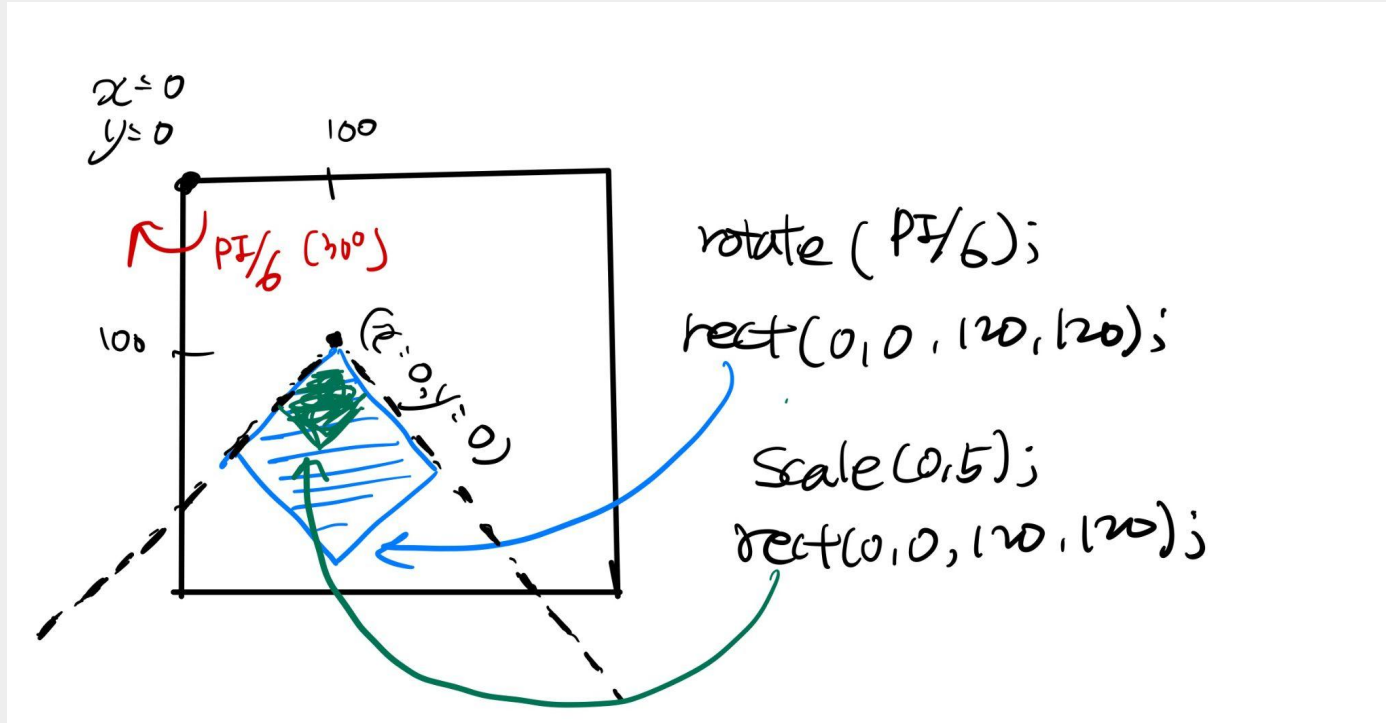 x=0
y=0
100
PI/6 (30°)
100
(x=0, y=0)
rotate (PI/6);
rect(0,0,120,120);
scale(0,5);
rect(0,0,120,120);